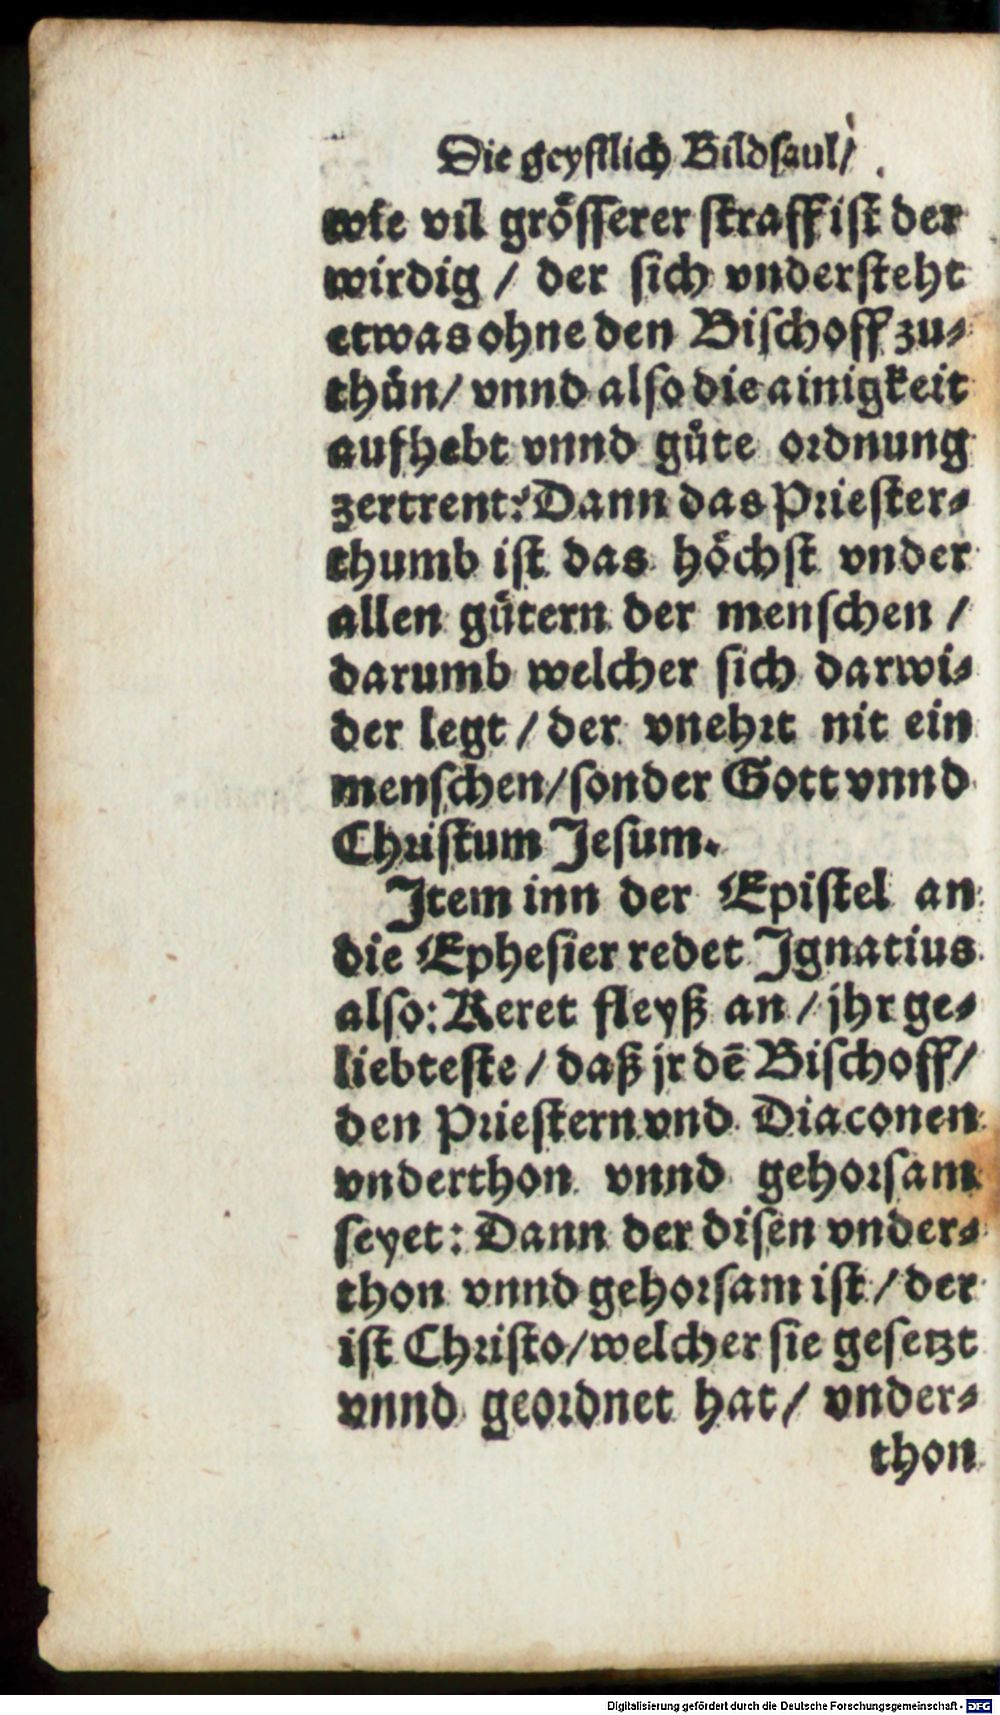 Die geystlich Bildsaul/
wie vil grösserer straff ist der
wirdig / der sich vndersteht
etwas ohne den Bischoff zu-
thůn/ vnnd also die ainigkeit
aufhebt vnnd gůte ordnung
zertrent? Dann das Priester-
thumb ist das höchst vnder
allen gütern der menschen /
darumb welcher sich darwi-
der legt / der vnehrt nit ein
menschen/sonder Gott vnnd
Christum Jesum.
Item inn der Epistel an
die Ephesier redet Ignatius
also: Keret fleyß an / jhr ge-
liebteste / daß jr dē Bischoff/
den Priestern vnd Diaconen
vnderthon vnnd gehorsam
seyet: Dann der disen vnder-
thon vnnd gehorsam ist / der
ist Christo/welcher sie gesetzt
vnnd geordnet hat/ vnder-
thon
Digitalisierung gefördert durch die Deutsche Forschungsgemeinschaft - DFG